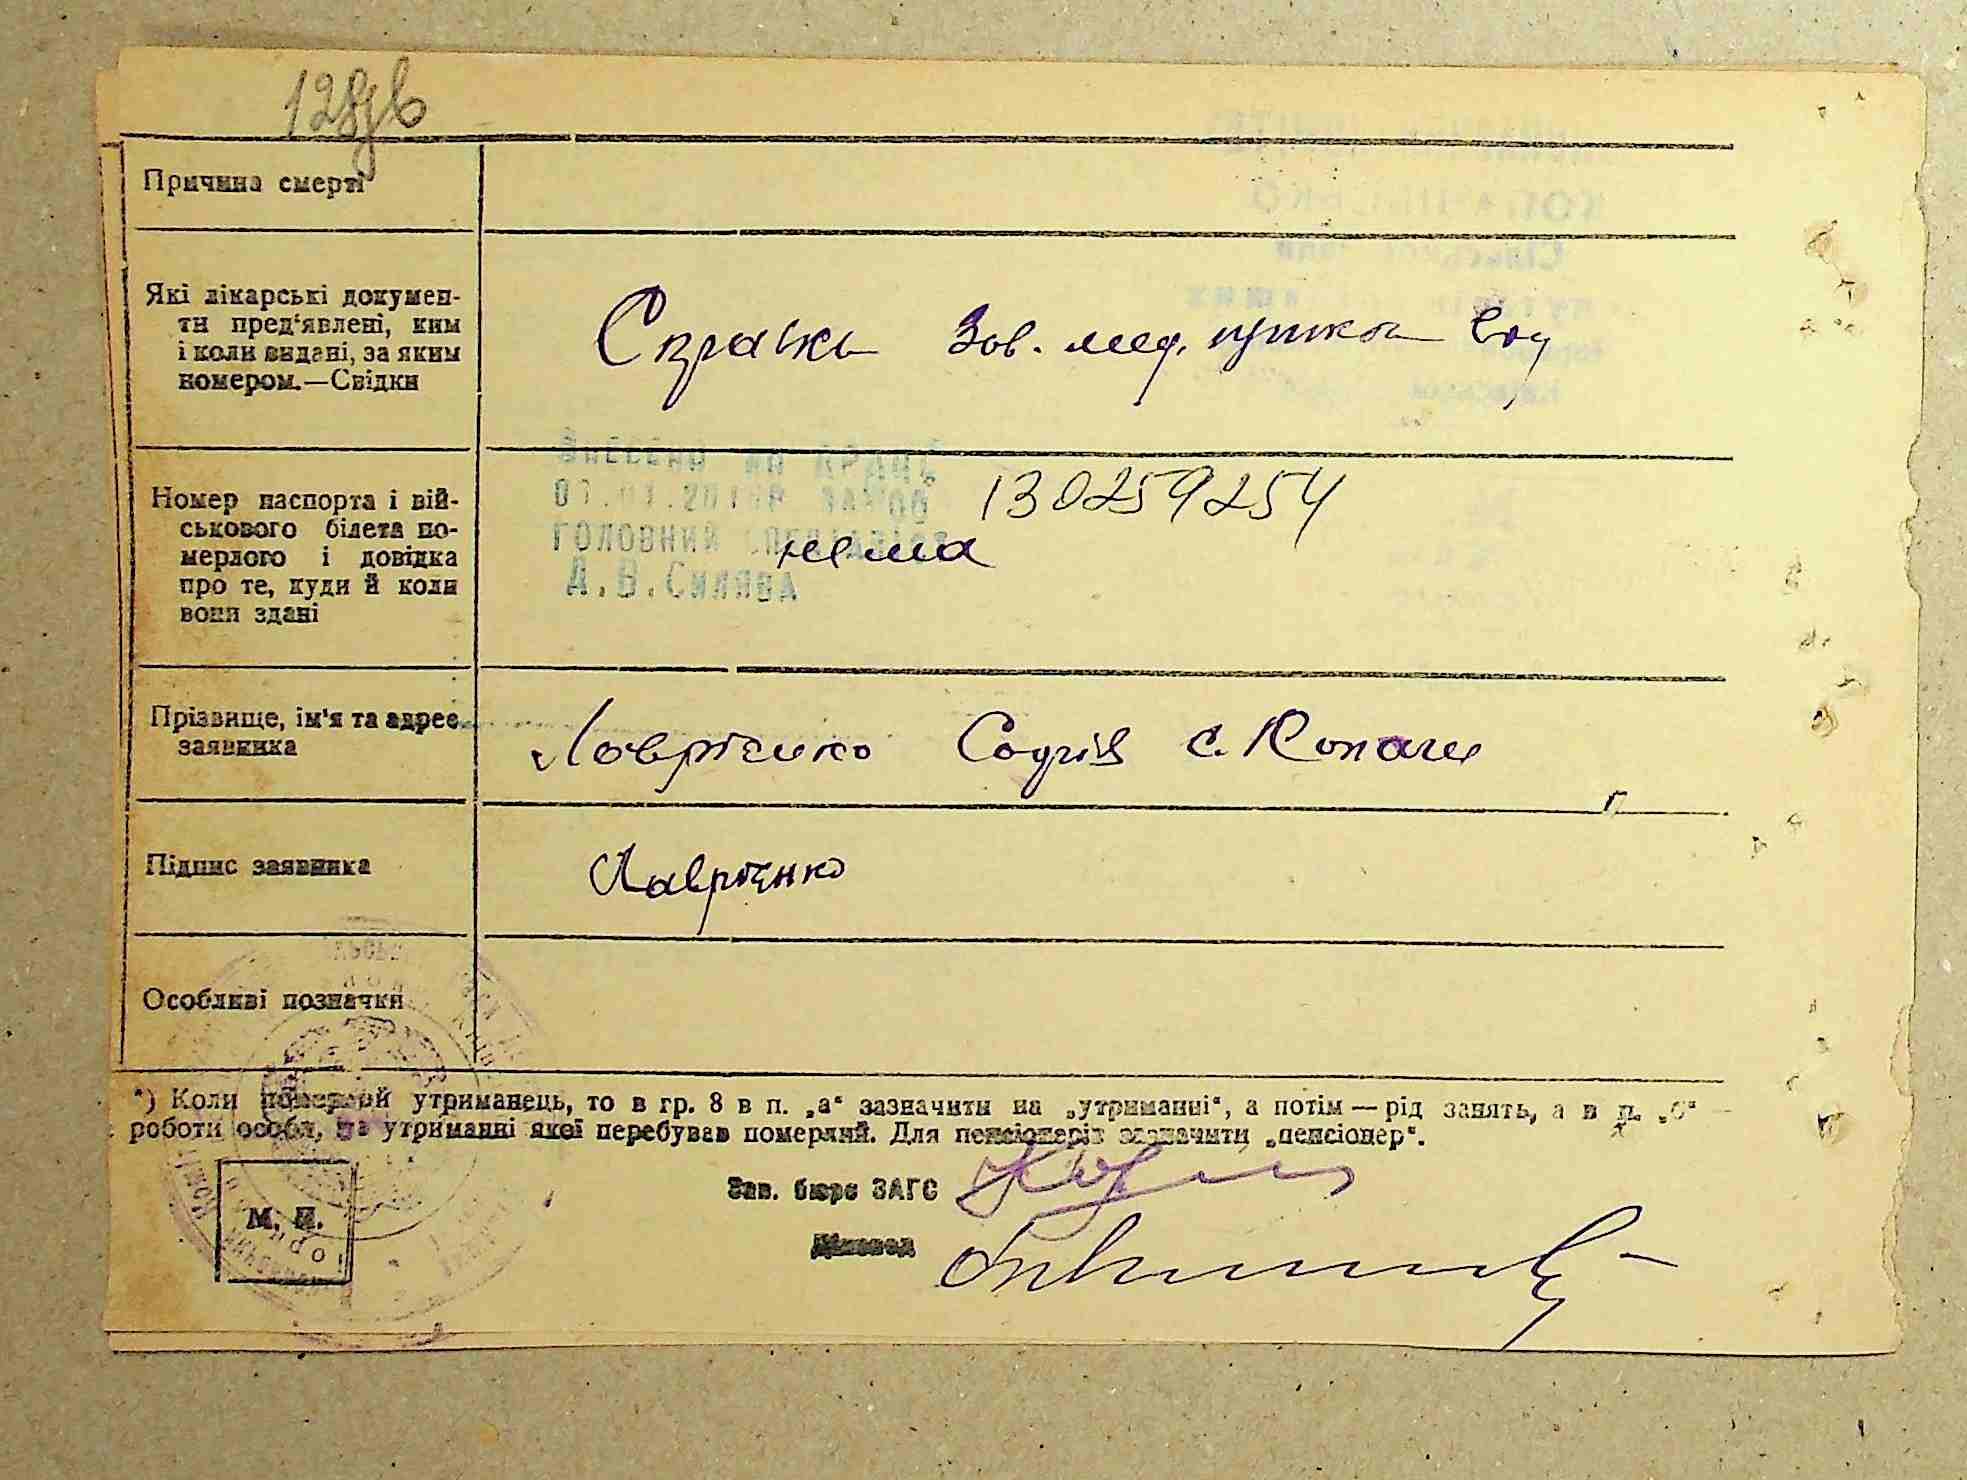 128зв
Причина смерті
Які лікарські докумен-
ти пред‘явлені, ким
і коли видані, за яким
номером.—Свідки
Справка Зав. мед. пункта
Номер паспорта і вій-
ськового білета по-
мерлого і довідка
про те, куди й коли
вони здані
ВНЕСЕНО ДО ДРАЦС
130259254
ГОЛОВНИЙ СПЕЦІАЛІСТ
нема
А.В.Силява
Прізвище, ім'я та адрес
заявника
Лаврієнко Софія с. Копачи
Підпис заявника
Лаврієнко
Особливі позначки
*) Коли померлий утриманець, то в гр. 8 в п. „а“ зазначити на „утриманні“, а потім — рід занять, а в п. „б“ —
роботи особи, на утриманні якої перебував померлий. Для пенсіонерів зазначити „пенсіонер“.
Зав. бюро ЗАГС
М. П.
Діловод